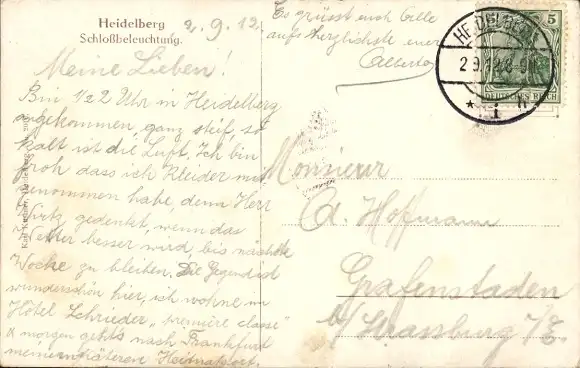 Heidelberg
Schloßbeleuchtung.
2.9.12.
Meine Lieben!
Bin ½2 Uhr in Heidelberg
angekommen, ganz steif, so
kalt ist die Luft. Ich bin
froh dass ich Kleider mit
genommen habe, denn Herr
Wirtz gedentet, wenn das
Wetter besser wird, bis nächste
Woche zu bleiben. Die Gegend ist
wunderschön hier, ich wohne im
Hôtel Schrieder „première classe"
u morgen gehts nach Frankfurt
meinem späteren Heimatsort.
Es grüsst euch Alle
aufs herzlichste euer
HEIDELBERG
2.9.12.8-9N
* 1 h
5
DEUTSCHES REICH
Monsieur
A. Hoffmann
Grafenstaden
b/ Strassburg i/E.